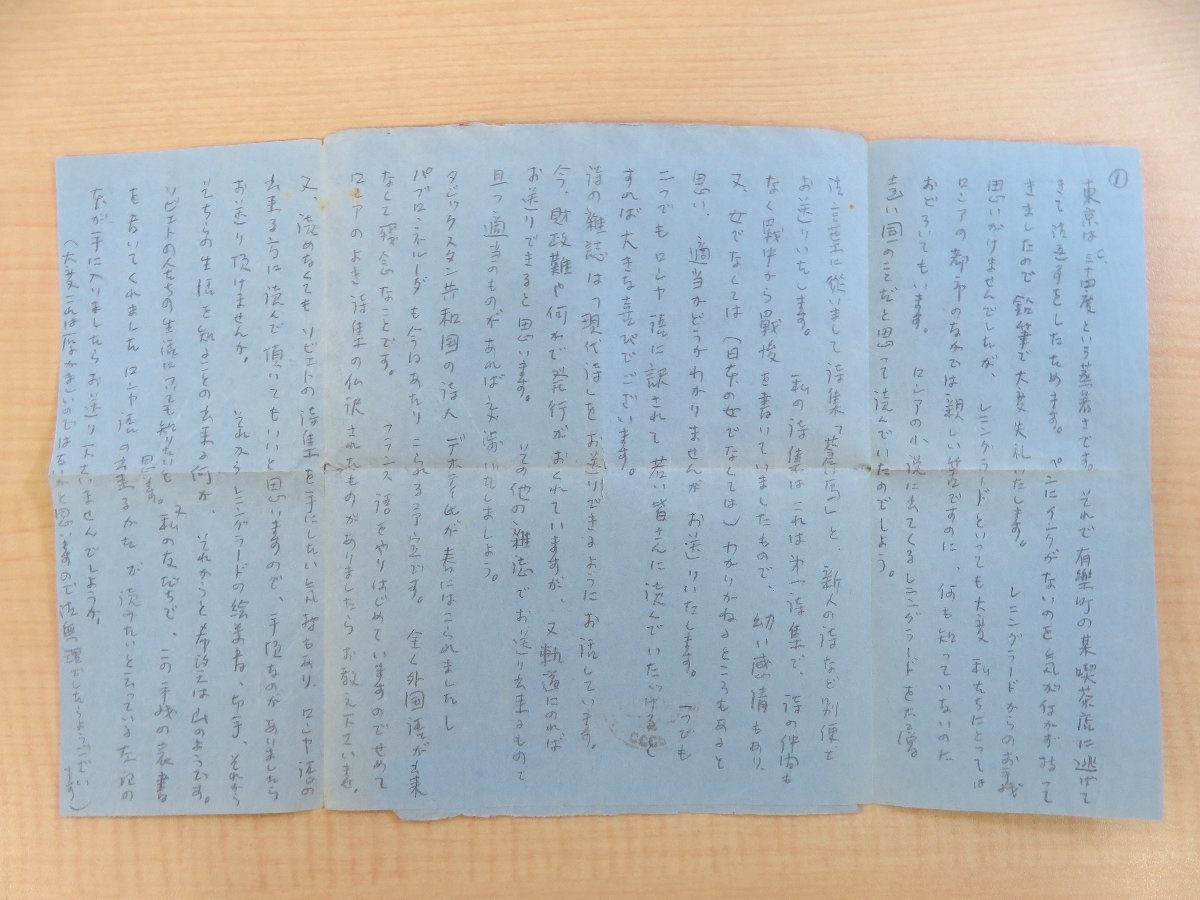 ①
東京は三十四度という蒸暑さです。それで有楽町の某喫茶店に逃げて
きて御返事をしたためます。ペンにインクがないのを気が付かず持って
きましたので鉛筆で大変失礼いたします。レニングラードからのお手紙
思いがけませんでしたが、レニングラードといっても大変私たちにとっては
ロシアの都市のなかでは親しい筈ですのに、何も知っていないのに
おどろいてもいます。ロシアの小説に出てくるレニングラードを大方
遠い国のことだと思って読んでいたのでしょう。
御言葉に従いまして詩集「 」と、新人の詩など別便で
お送りいたします。私の詩集はこれは第一詩集で、詩の仲間も
なく戦中から戦後を書いていましたもので、幼い感情もあり、
又、女でなくては(日本の女でなくては)わかりかねるところもあると
思い、適当かどうかわかりませんがお送りいたします。一つでも
二つでもロシヤ語に訳されて若い皆さんに読んでいただけると
すれば大きな喜びでございます。
詩の雑誌は「現代詩」をお送りできるようにお話しています。
今、財政難や何かで発行がおくれていますが、又軌道にのれば
お送りできると思います。その他の雑誌でお送り出来るもので
且つ適当のものがあれば交渉いたしましょう。
タジックスタン共和国の詩人デホティ氏が春にはこられましたし
パブロ・ネルーダも今はあたりこられる予定です。全く外国語が出来
なくて残念なことです。フランス語をやりはじめていますのでせめて
ロシアのよき詩集の仏訳されたものがありましたらお教え下さいませ。
又、読めなくてもソビエトの詩集を手にしたい気持もあり、ロシヤ語の
出来る方に読んで頂いてもいいと思いますので、手頃なのがありましたら
お送り頂けませんか。それからレニングラードの絵葉書、切手、それから
そちらの生活を知ることの出来る何か、それからと希望は山のようです。
ソビエトの人たちの生活についても知りたいと思います。又私の友だちで、この手紙の表書
きを書いてくれましたロシヤ語の出来るかたが読みたいと云っている左記の
本が手に入りましたらお送り下さいませんでしょうか。
(大変これは厚かましいのではないかと思いますので御無理でしたらよろしいでございます)
CCCP